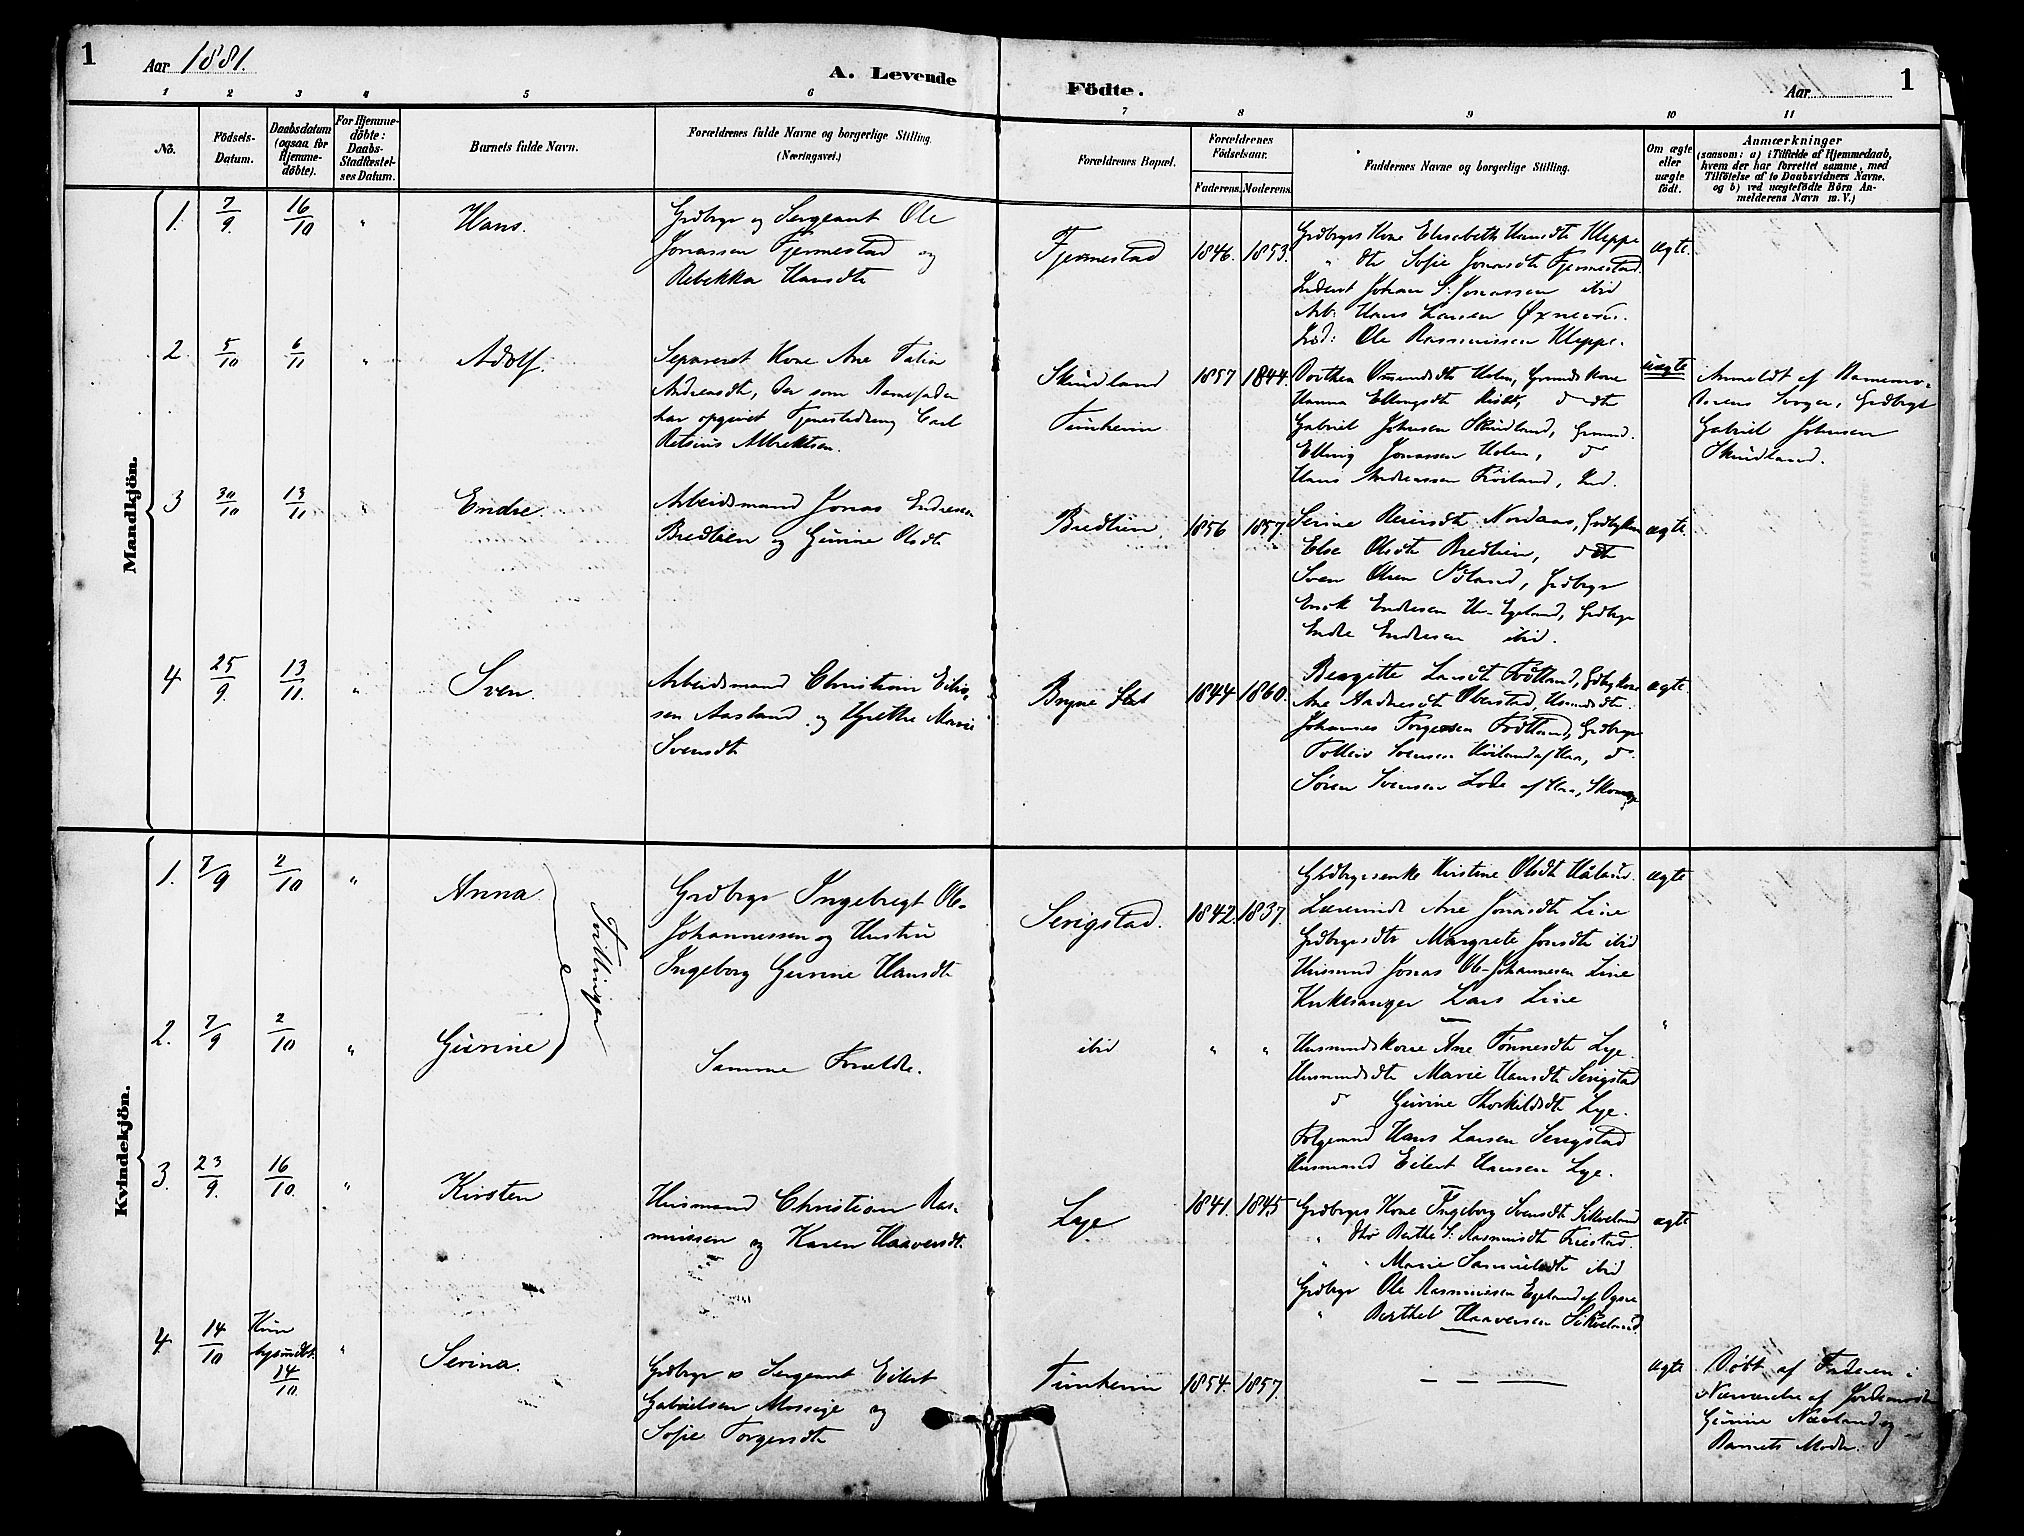 1
Aar 1881.
A. Levende
Födte.
Aar
1
1 2 3 4 5 6 7 8 9 10 11
No.
Födsels-
Datum.
Daabsdatum
(ogsaa for
Hjemme-
döbte).
For Hjemme-
döbte:
Daabs-
Stadfæstel-
ses Datum.
Barnets fulde Navn.
Forældrenes fulde Navne og borgerlige Stilling.
(Næringsvei.)
Forældrenes Bopæl.
Forældrenes
Födselsaar.
Faderens. Moderens.
Faddernes Navne og borgerlige Stilling.
Om ægte
eller
uægte
födt.
Anmærkninger
(saasom: a) i Tilfælde af Hjemmedaab,
hvem der har forrettet samme, med
Tilföielse af to Daabsvidners Navne.
og b) ved uægtefödte Börn An-
melderens Navn m. V.)
Mandkjön.
1. 7/9. 16/10 " Hans.
Grdbrgr og Sergeant Ole
Jonassen Fjermestad og
Rebekka Hansdt
Fjermestad 1846. 1853.
Grdbrgrs Kone Elisabeth Hansdt Kleppe
" dtr Sofie Jonasdt Fjermestad.
Inderst Johan S. Jonassen ibid
Arb: Hans Larsen
Ind: Ole Rasmussen Kleppe.
ægte.
2. 5/10 6/11 " Adolf.
Separeret Kone Ane Talia
Andreasdt, der som Barnefader
har opgivet Carl
Albrektsen.
Skindland
Tunheim
1857 1844.
Dorthea Omundsdt Holen,
Hanna Ellingsdt
Gabriel Johnsen Skindland,
Elling Jonassen Holen, d
Hans Andreassen Fröiland, Ind.
uægte
Anmeldt af Barnemo-
derens Svoger, Grdbrgr
Gabriel Johnsen
Skindland.
3 30/10 13/11 " Endre.
Arbeidsmand Jonas Endresen
Bredlien og Gurine Olsdt
Bredlien. 1856 1857.
Serine Nordaas,
Else Olsdt Bredlien,
Sven Olsen Grdbrgr
Erik Endresen Egeland, Grdbrgr
Endre Endresen ibid.
ægte.
4 25/9. 13/11. " Sven.
Arbeidsmand Christian Eilis-
sen Aasland og Grethe Marie
Svensdt
Bryne Stat 1844 1860.
Bergitte Larsdt Frötland,
Ane Andreasdt Obrestad,
Johannes Torgersen Frötland, Grdbrgr
Tolleiv Svensen af Haa, d
Sören Svensen Lode af Haa,
ægte
Kvindekjön.
1. 7/9 2/10 " Anna
Tvillinger
Grdbrgr Ingebregt Ol-
Johannessen og Hustru
Ingeborg Gurine Hansdt
Serigstad. 1842. 1837.
Grdbrgrsenke Kirstine Olsdt Håland.
Ane Jonasdt Line
Grdbrgrsdtr Margrete Jonsdt ibid
Husmand Jonas Ol-Johannesen Line
Kirkesanger Lars Line
ægte
2. 7/9 2/10 " Gurine
Samme Forældre.
ibid " "
Husmandskone Ane Tönnesdt Lye.
Husmandsdtr Marie Hansdt Serigstad
d Gurine Thorkildsdt Lye.
Hans Larsen Serigstad
Husmand Eilert Hansen Lye.
"
3. 23/9. 16/10. " Kirsten
Husmand Christian Ras-
mussen og Karen Haaversdt.
Lye 1841. 1845
Grdbrgrs Kone Ingeborg Svensdt Sikveland
" dtr Berthe S. Rasmusdt Friestad.
" " Marie Samuelsdt ibid
Grdbrgr Ole Rasmussen Egeland af Ogne
" Berthel Haaversen Sikveland.
ægte
4 14/10 14/10 " Serina.
Grdbrgr og Sergeant Eilert
Gabrielsen Mossige og
Sofie Torgersdt
Tunheim 1854. 1857.
— — —
ægte
Döbt af Faderen i
Nærværelse af Jordemoder
Gurine Nærland og
Barnets Moder.